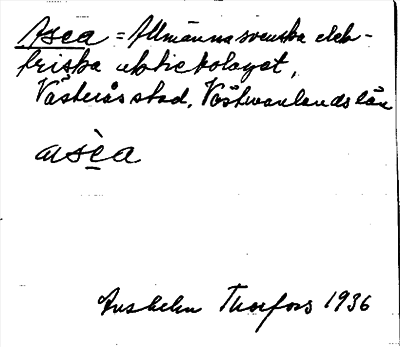 Asea = Allmänna svenska elek-
triska aktiebolaget,
Västerås stad, Västmanlands län
aséa
Anshelm Thorfors 1936